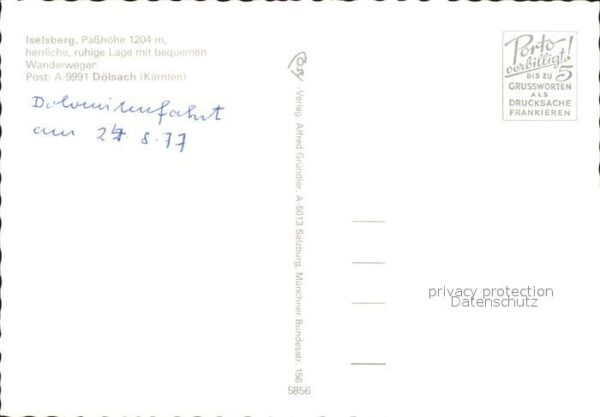 Iselsberg, Paßhöhe 1204 m,
herrliche, ruhige Lage mit bequemen
Wanderwegen
Post: A-9991 Dölsach (Kärnten)
Dolomitenfahrt
am 27 8.77
-Verlag, Alfred Gründler, A-5013 Salzburg, Münchner Bundesstr. 156
5856
Porto
verbilligt!
BIS ZU 5
GRUSSWORTEN
ALS
DRUCKSACHE
FRANKIEREN
privacy protection
Datenschutz